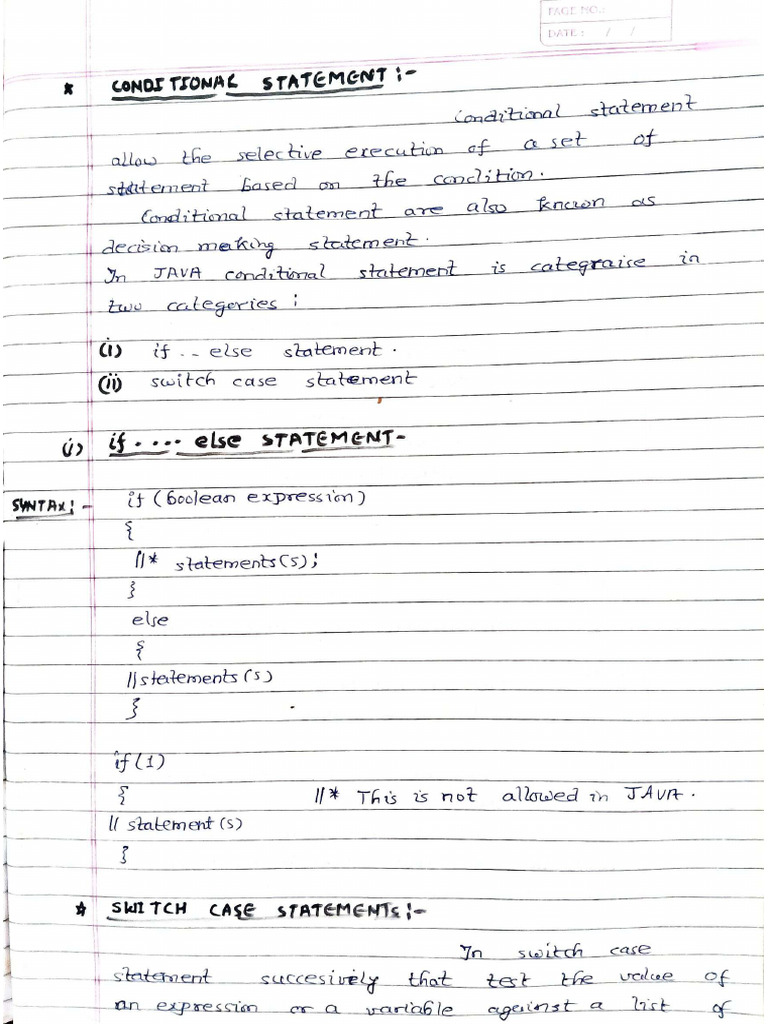 PAGE NO.:
DATE: / /
* CONDITIONAL STATEMENT :-
Conditional statement
allow the selective execution of a set of
statement based on the condition.
Conditional statement are also known as
decision making statement.
In JAVA conditional statement is categraise in
two categories :
(i) if .. else statement.
(ii) switch case statement
(i) if .... else STATEMENT-
SYNTAX :- if (boolean expression)
{
//* statements(s);
}
else
{
//statements(s)
}
if(1)
{ //* This is not allowed in JAVA.
// statement(s)
}
* SWITCH CASE STATEMENTs :-
In switch case
statement succesively that test the value of
an expression or a variable against a list of